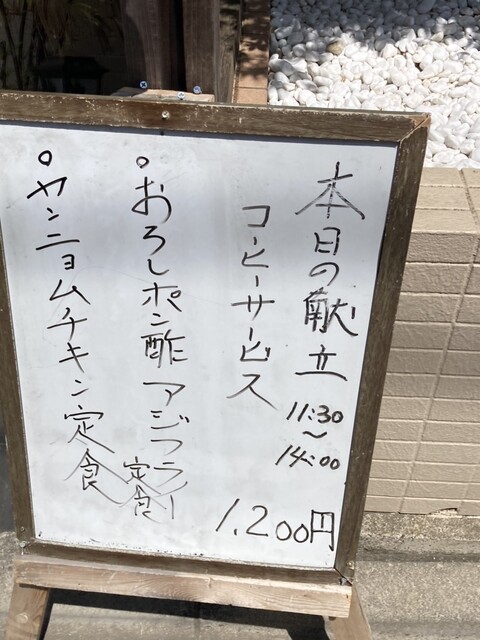 本日の献立
11:30
〜
14:00
コーヒーサービス
○おろしポン酢アジフライ定食
○ヤンニョムチキン定食
1.200円